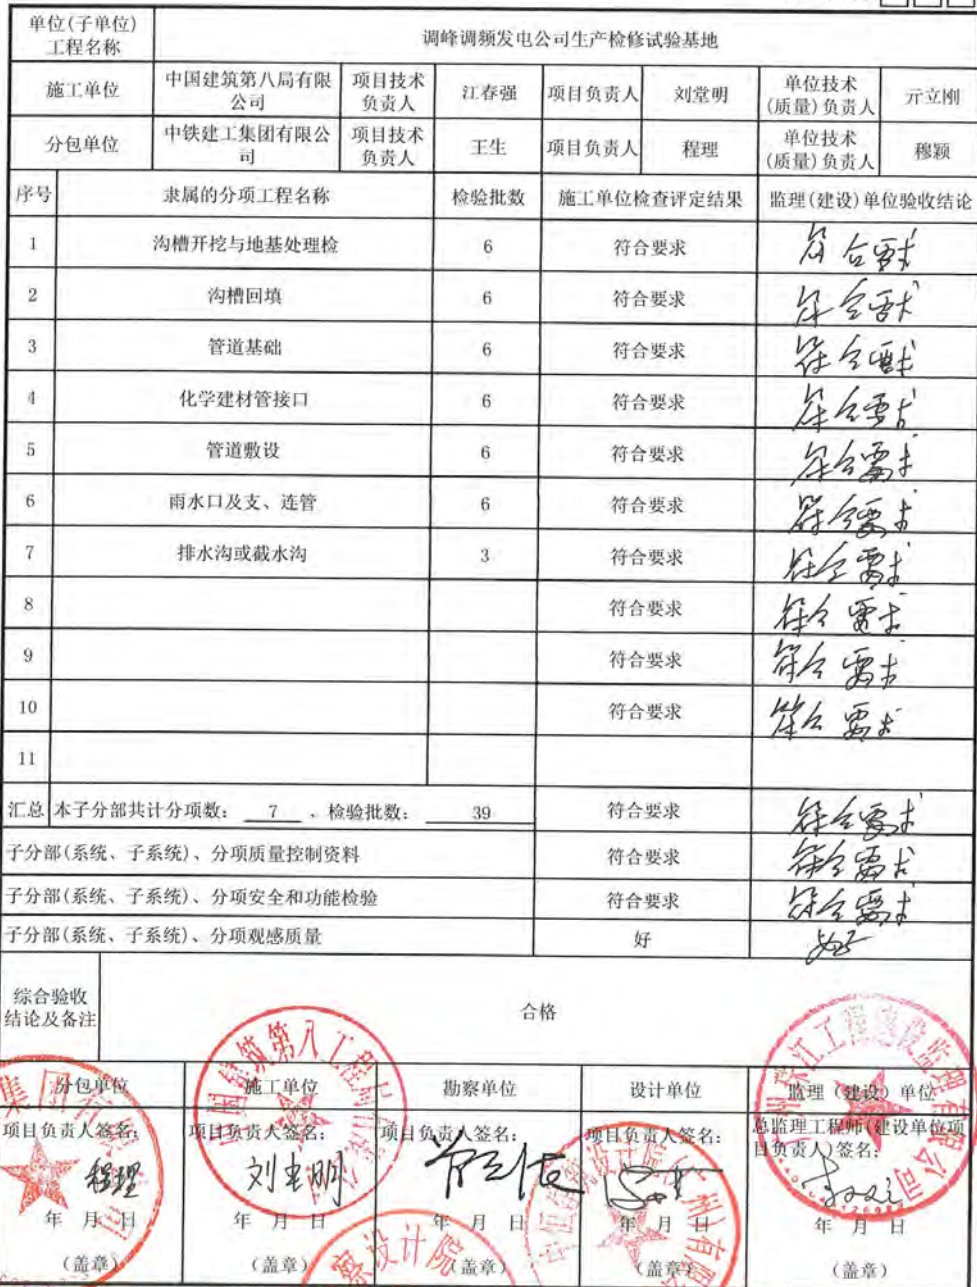 单位(子单位)
工程名称
调峰调频发电公司生产检修试验基地
施工单位
中国建筑第八局有限
公司
项目技术
负责人
江春强
项目负责人
刘堂明
单位技术
(质量)负责人
亓立刚
分包单位
中铁建工集团有限公
司
项目技术
负责人
王生
项目负责人
程理
单位技术
(质量)负责人
穆颖
序号 隶属的分项工程名称 检验批数 施工单位检查评定结果 监理(建设)单位验收结论
1 沟槽开挖与地基处理检 6 符合要求 符合要求
2 沟槽回填 6 符合要求 符合要求
3 管道基础 6 符合要求 符合要求
4 化学建材管接口 6 符合要求 符合要求
5 管道敷设 6 符合要求 符合要求
6 雨水口及支、连管 6 符合要求 符合要求
7 排水沟或截水沟 3 符合要求 符合要求
8 符合要求 符合要求
9 符合要求 符合要求
10 符合要求 符合要求
11
汇总 本子分部共计分项数: 7 、检验批数: 39 符合要求 符合要求
子分部(系统、子系统)、分项质量控制资料 符合要求 符合要求
子分部(系统、子系统)、分项安全和功能检验 符合要求 符合要求
子分部(系统、子系统)、分项观感质量 好 好
综合验收
结论及备注
合格
分包单位 施工单位 勘察单位 设计单位 监理(建设)单位
项目负责人签名: 项目负责人签名: 项目负责人签名: 项目负责人签名: 总监理工程师(建设单位项
目负责人)签名:
程理 刘堂明
年 月 日 年 月 日 年 月 日 年 月 日 年 月 日
(盖章) (盖章) (盖章) (盖章) (盖章)